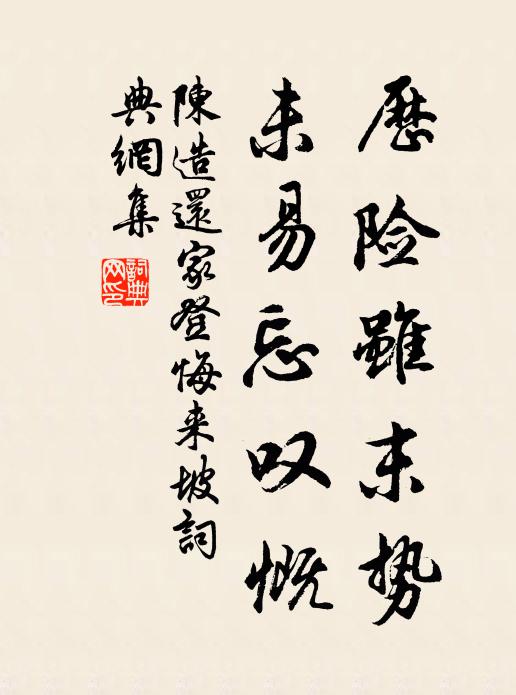 歷险雖未势
未易忘叹慨
陳造還家登悔来坡詞
典網集
詞典
网印